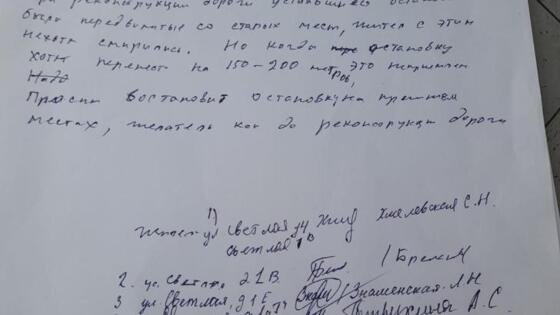 реконструкции дороги
были передвинуты со старых мест, жител с этим
нехотя смирились. Но когда остановку
хотят перенест на 150-200 метров, это неприемлем
Просим востановит остановку на прежнем
местах, желатель как до реконструкци дороги
1) Жители ул Светлая 14 Хмелевская С.Н.
Светлая 1в
2. ул. Светлая, 21В.
3 ул. Светлая, 21Г Знаменская Л Н
А. С.